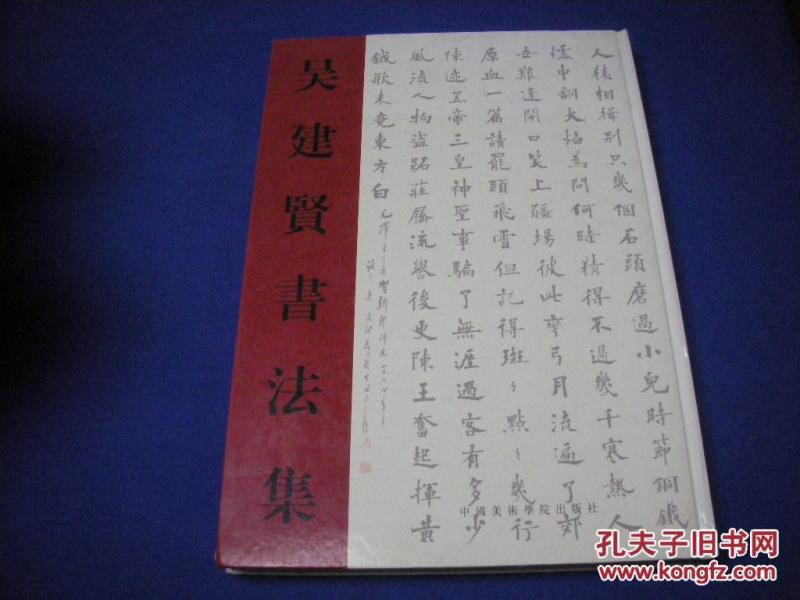 吴建賢書法集
人猿相揖别只幾個石頭磨過小兒時節銅鐵
爐中翻火焰為問何時猜得不過幾千寒熱人
世難逢開口笑上疆場彼此彎弓月流遍了郊
原血一篇讀罷頭飛雪但記得斑〻點〻幾行
陳迹五帝三皇神聖事騙了無涯過客有多少
風流人物盜跖莊屩流譽後更陳王奮起揮黄
鉞歌未竟東方白
賀新郎讀史
中國美術學院出版社
孔夫子旧书网
www.kongfz.com